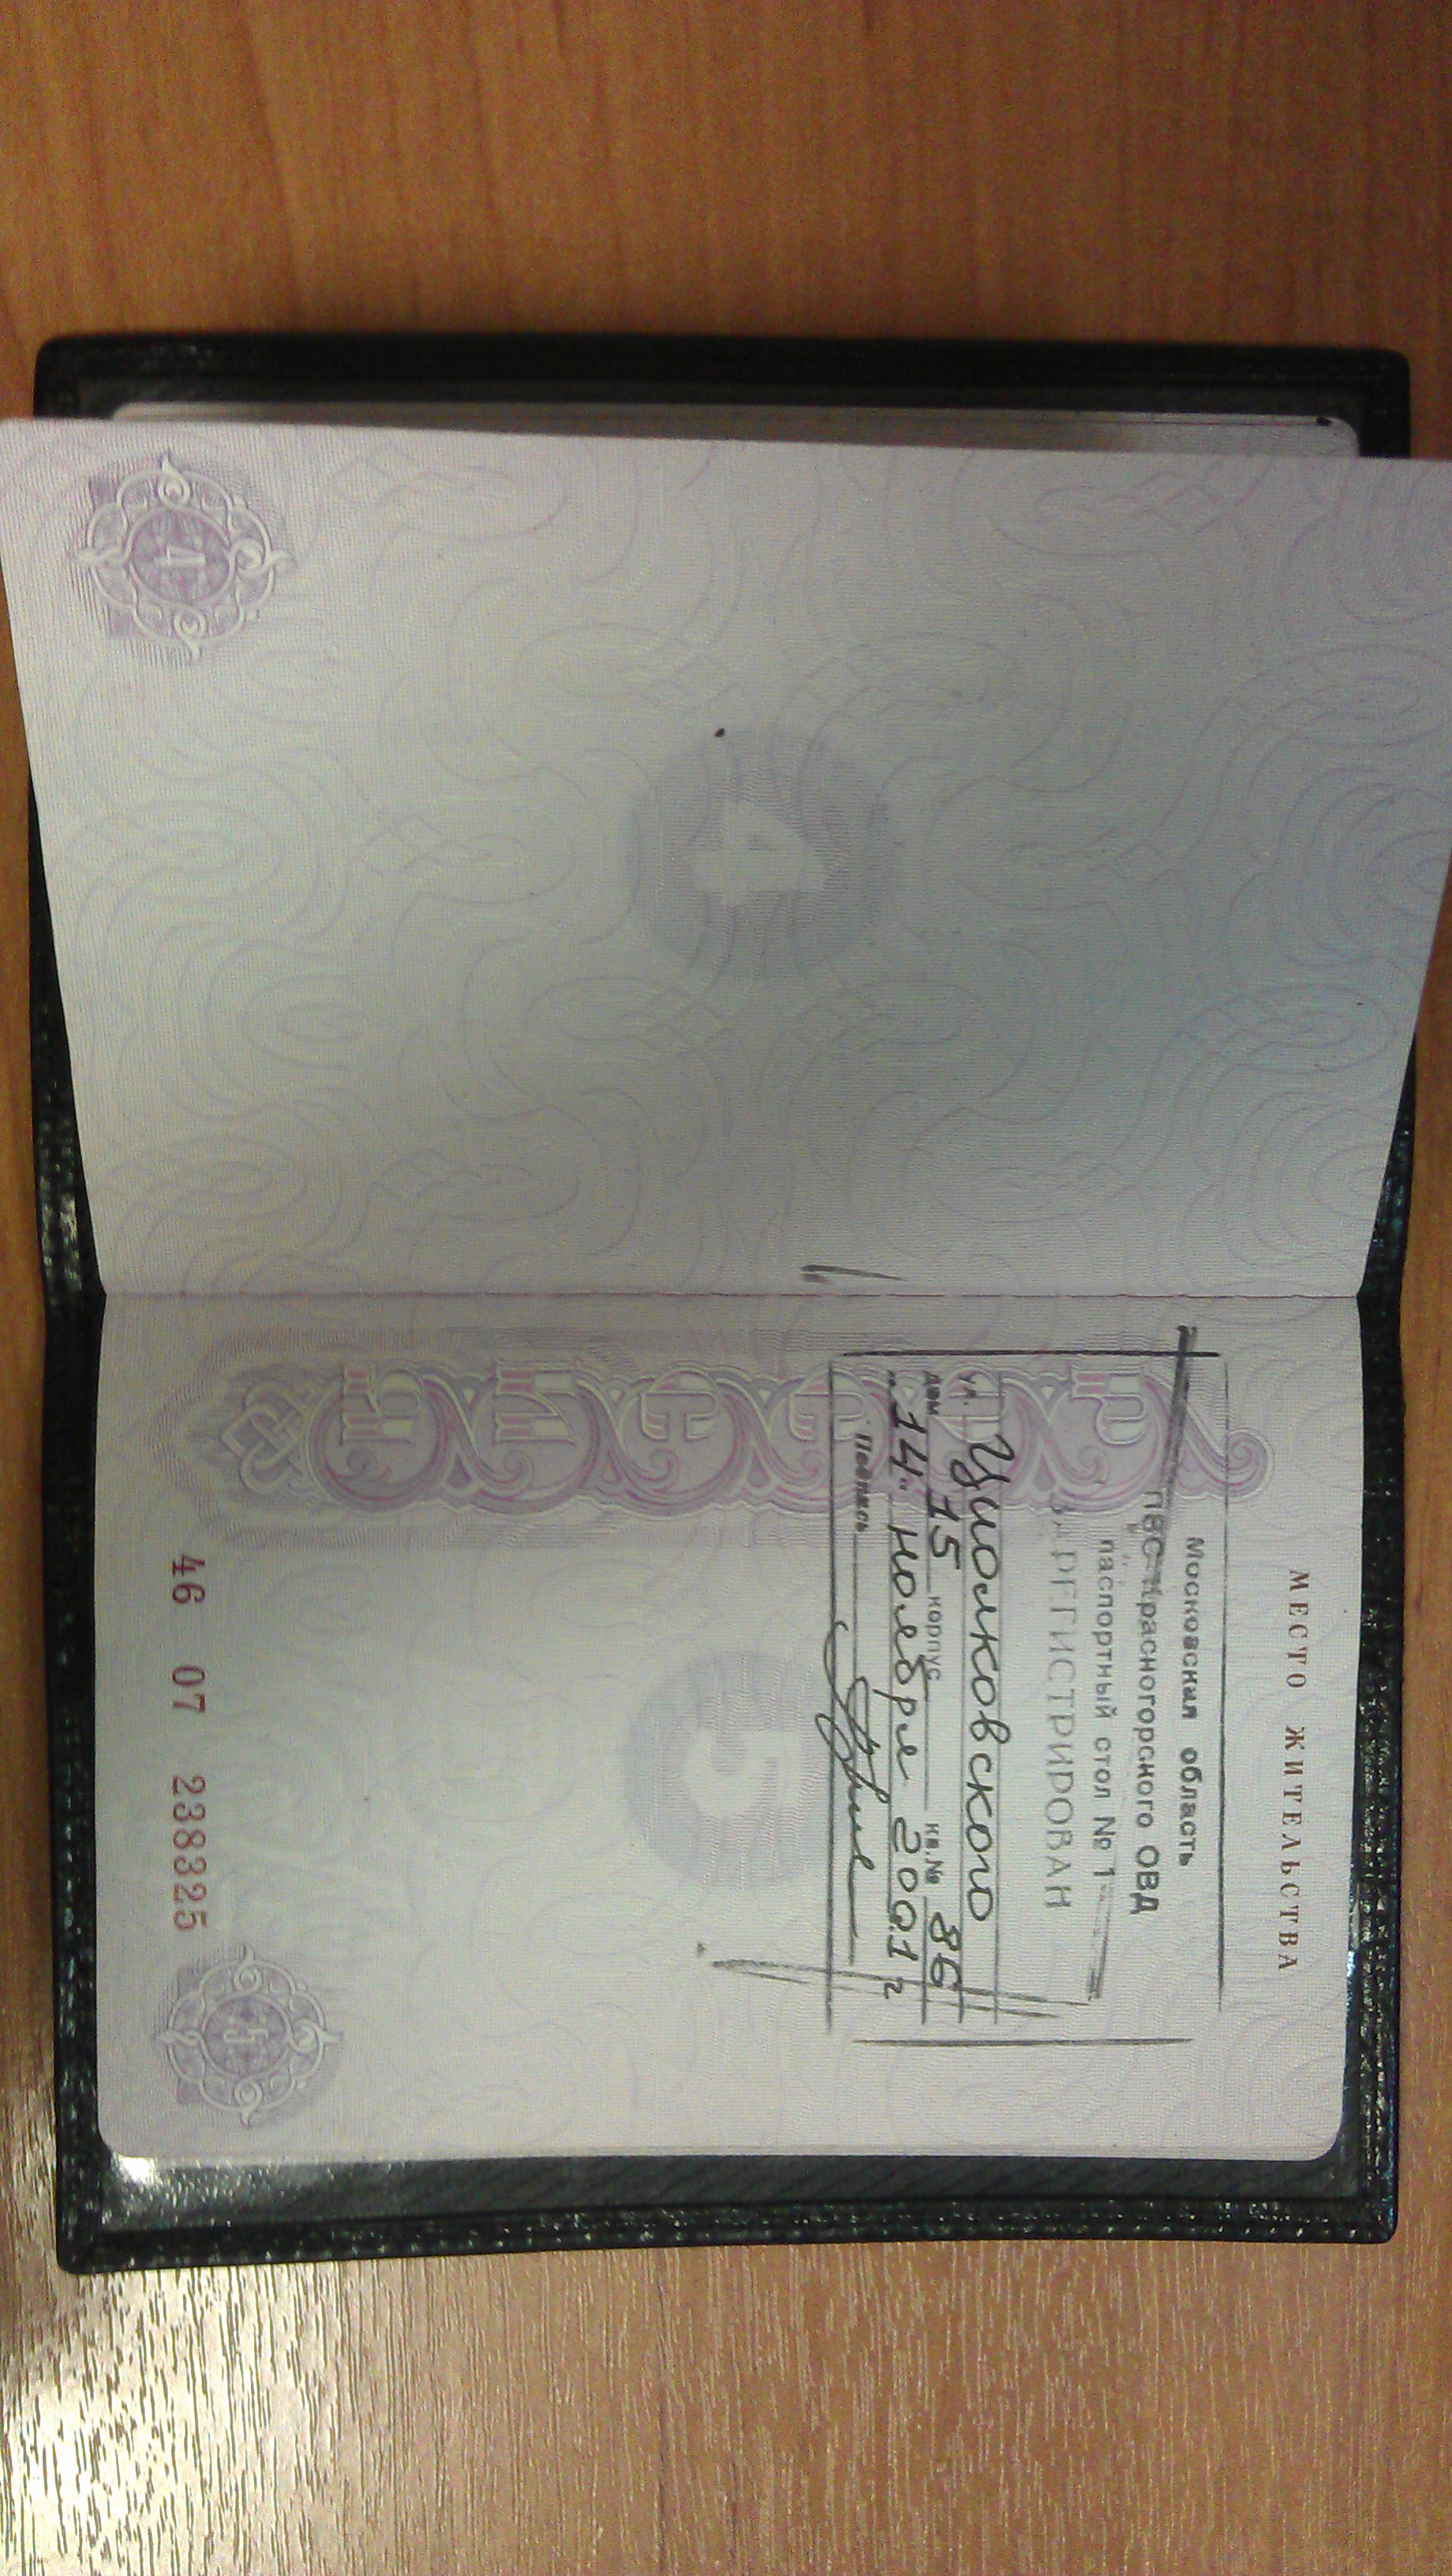 4
4
МЕСТО ЖИТЕЛЬСТВА
Московская область
ПВС Красногорского ОВД
паспортный стол № 1
ЗАРЕГИСТРИРОВАН
ул. Циолковского
дом 15 корпус кв.№ 86
"14" ноября 2001 г
Подпись
5
46 07 238325
5